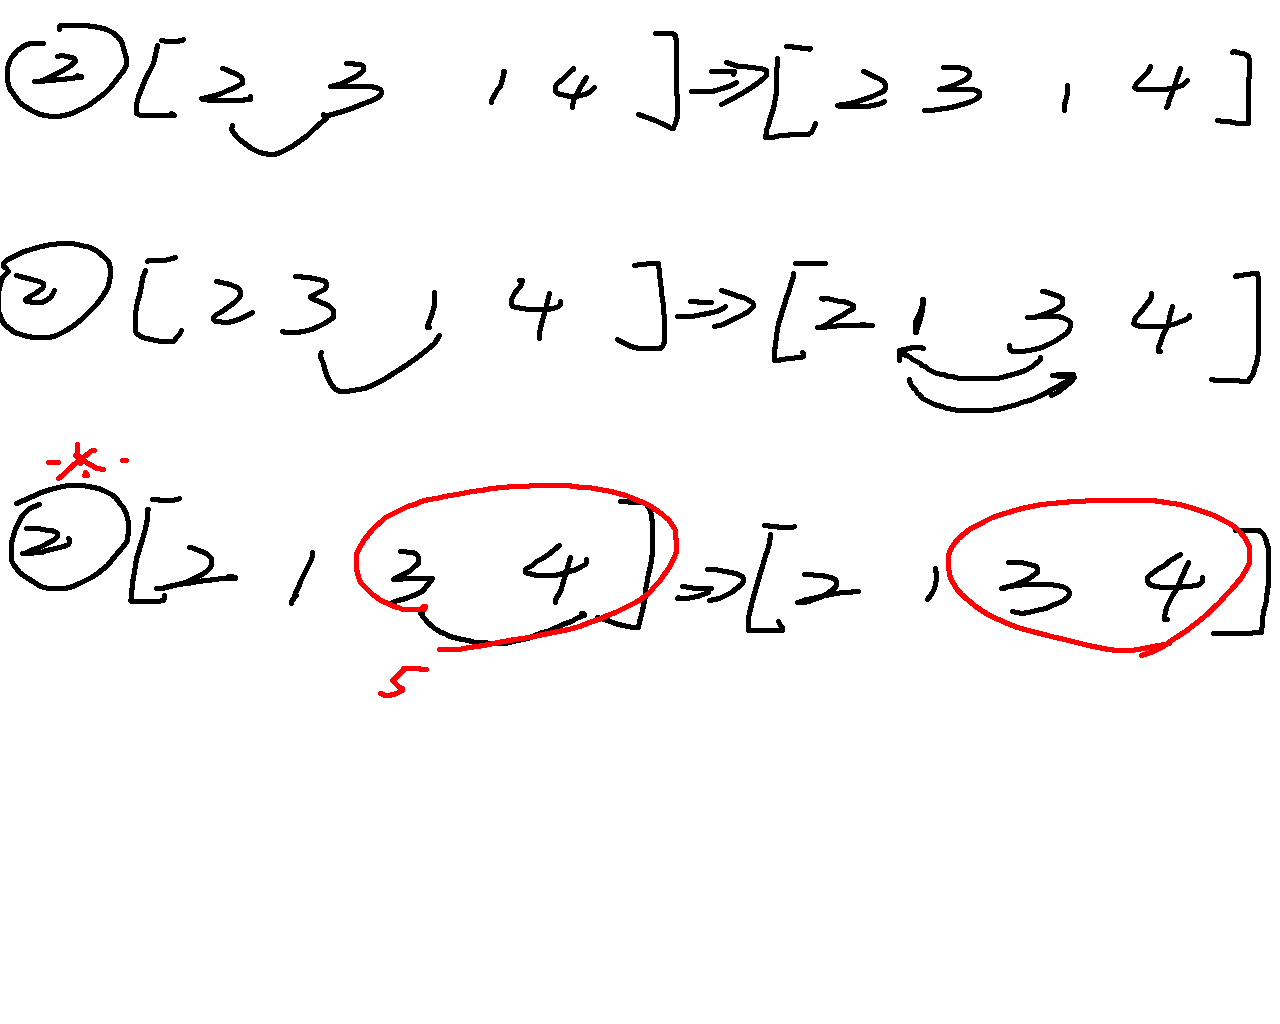 ② [2 3 1 4] ⇒ [2 3 1 4]
② [2 3 1 4] ⇒ [2 1 3 4]
② [2 1 3 4] ⇒ [2 1 3 4]
5